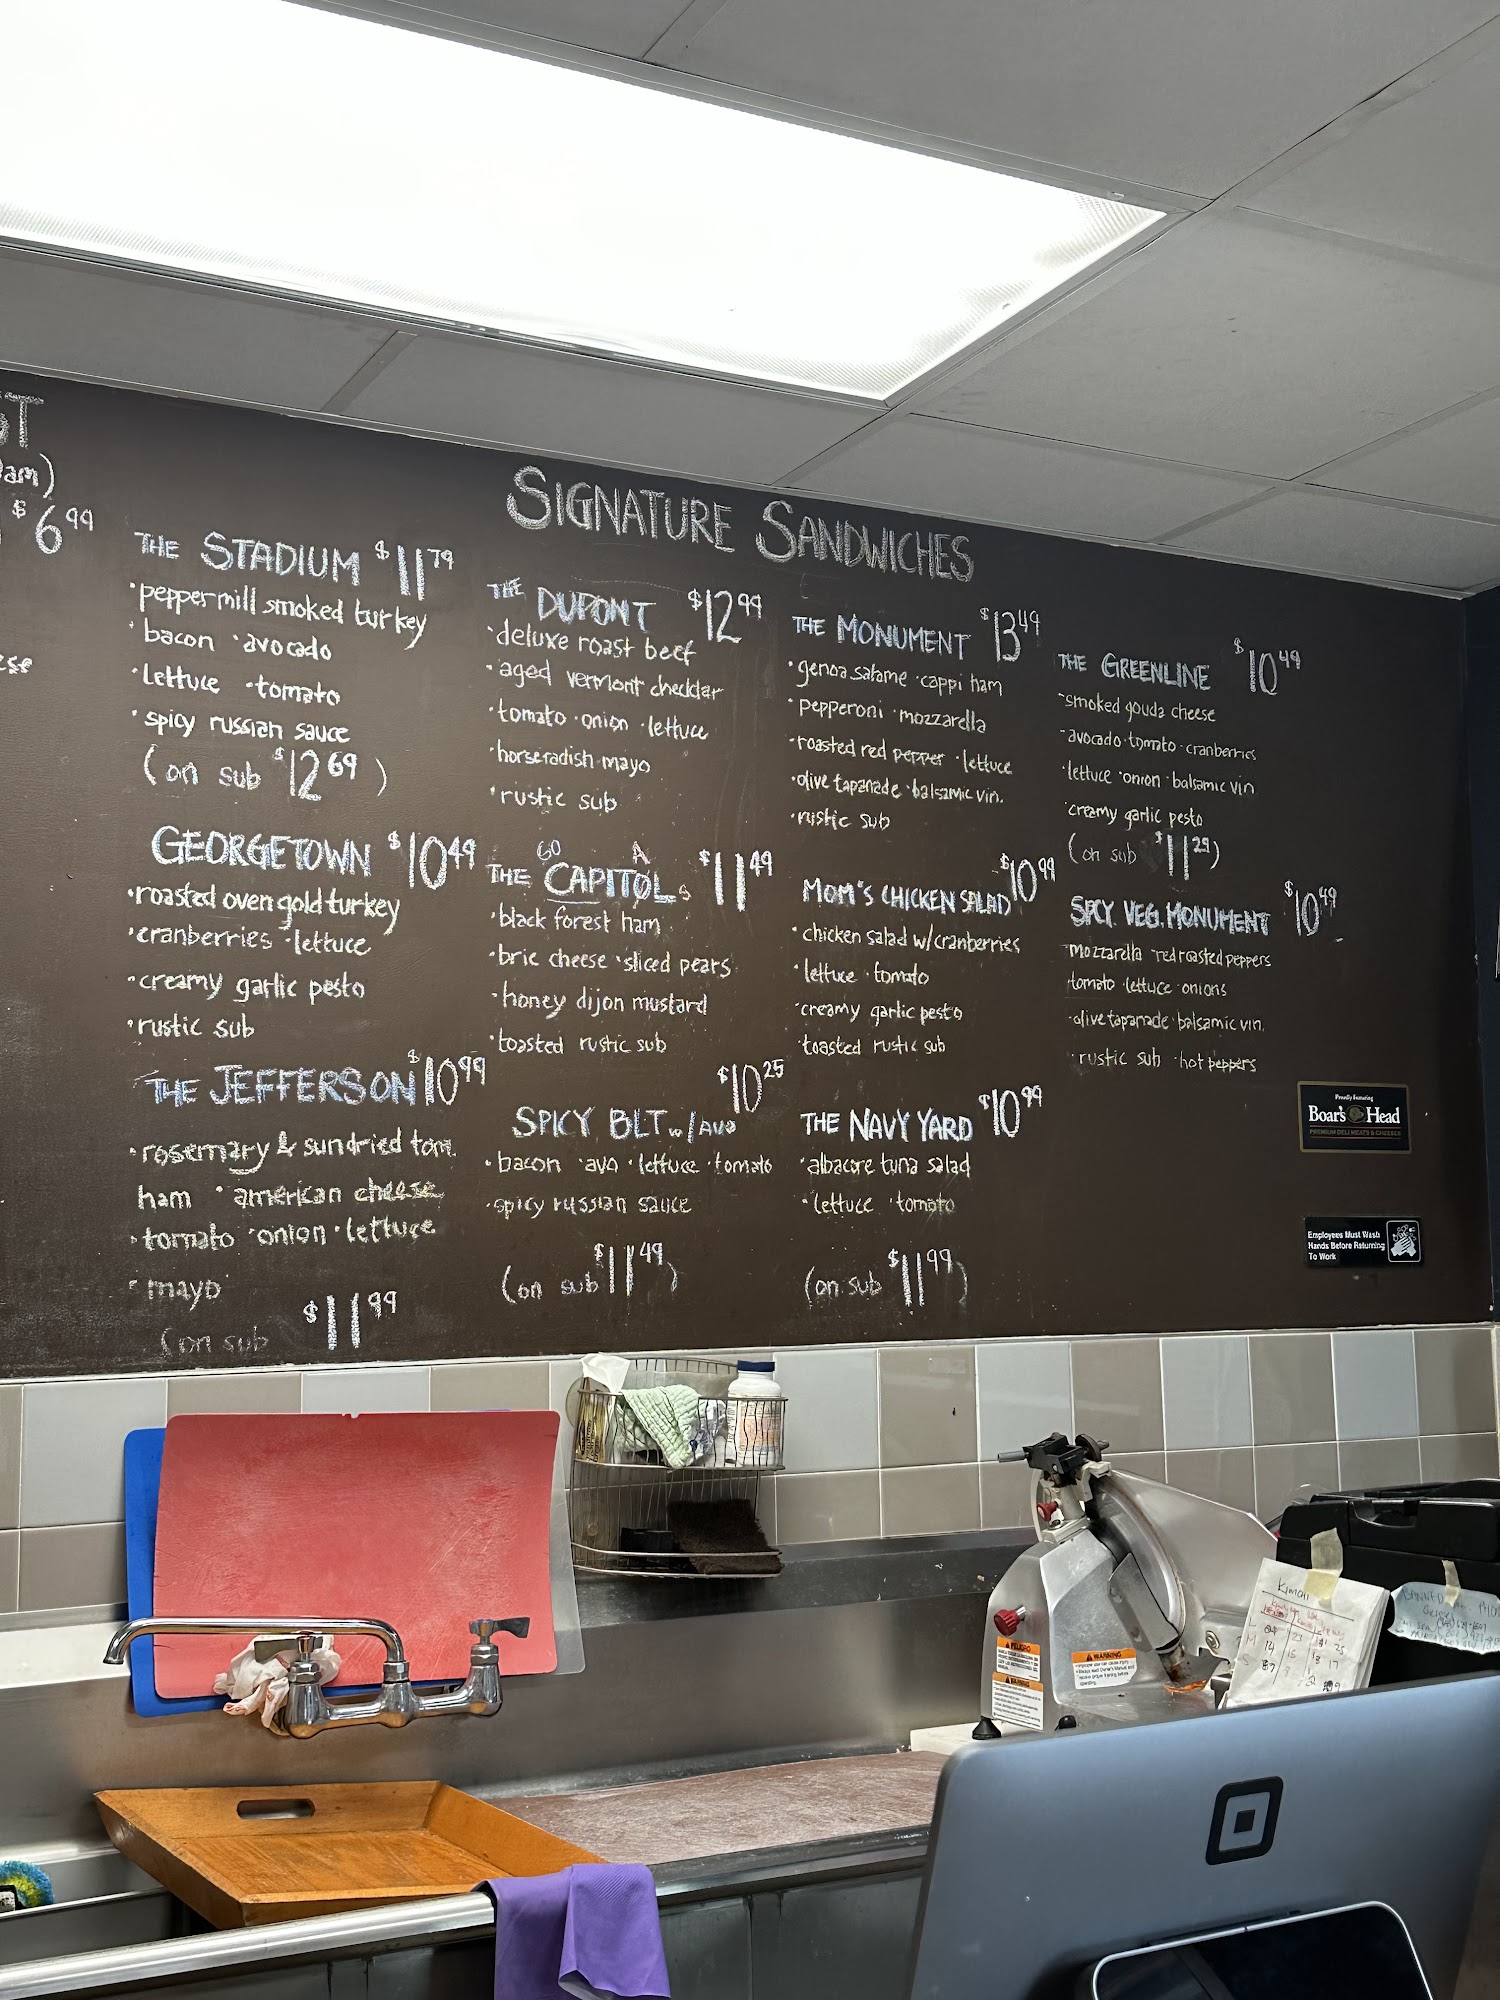 ST
am)
$6.99
ese
SIGNATURE SANDWICHES
THE STADIUM $11.79
·peppermill smoked turkey
·bacon ·avocado
·lettuce ·tomato
·spicy russian sauce
(on sub $12.69)
GEORGETOWN $10.49
·roasted oven gold turkey
·cranberries ·lettuce
·creamy garlic pesto
·rustic sub
THE JEFFERSON $10.99
·rosemary & sundried tom.
ham ·american cheese
·tomato ·onion ·lettuce
·mayo
(on sub $11.99
THE DUPONT $12.99
·deluxe roast beef
·aged vermont cheddar
·tomato ·onion ·lettuce
·horseradish mayo
·rustic sub
GO A
THE CAPITOL $11.49
·black forest ham
·brie cheese ·sliced pears
·honey dijon mustard
·toasted rustic sub
$10.25
SPICY BLT w/ AVO
·bacon ·avo ·lettuce ·tomato
·spicy russian sauce
(on sub $11.49)
THE MONUMENT $13.49
·genoa salame ·cappi ham
·pepperoni ·mozzarella
·roasted red pepper ·lettuce
·olive tapanade ·balsamic vin.
·rustic sub
MOM'S CHICKEN SALAD $10.99
·chicken salad w/cranberries
·lettuce ·tomato
·creamy garlic pesto
·toasted rustic sub
THE NAVY YARD $10.99
·albacore tuna salad
·lettuce ·tomato
(on sub $11.99)
THE GREENLINE $10.49
·smoked gouda cheese
·avocado ·tomato ·cranberries
·lettuce ·onion ·balsamic vin
·creamy garlic pesto
(on sub $11.29)
SPCY. VEG. MONUMENT $10.49
·mozzarella ·red roasted peppers
·tomato ·lettuce ·onions
·olive tapanade ·balsamic vin.
·rustic sub ·hot peppers
Proudly Featuring
Boar's Head
PREMIUM DELI MEATS & CHEESES
Employees Must Wash
Hands Before Returning
To Work
PELIGRO
WARNING
WARNING
KIMCHI
BANNED